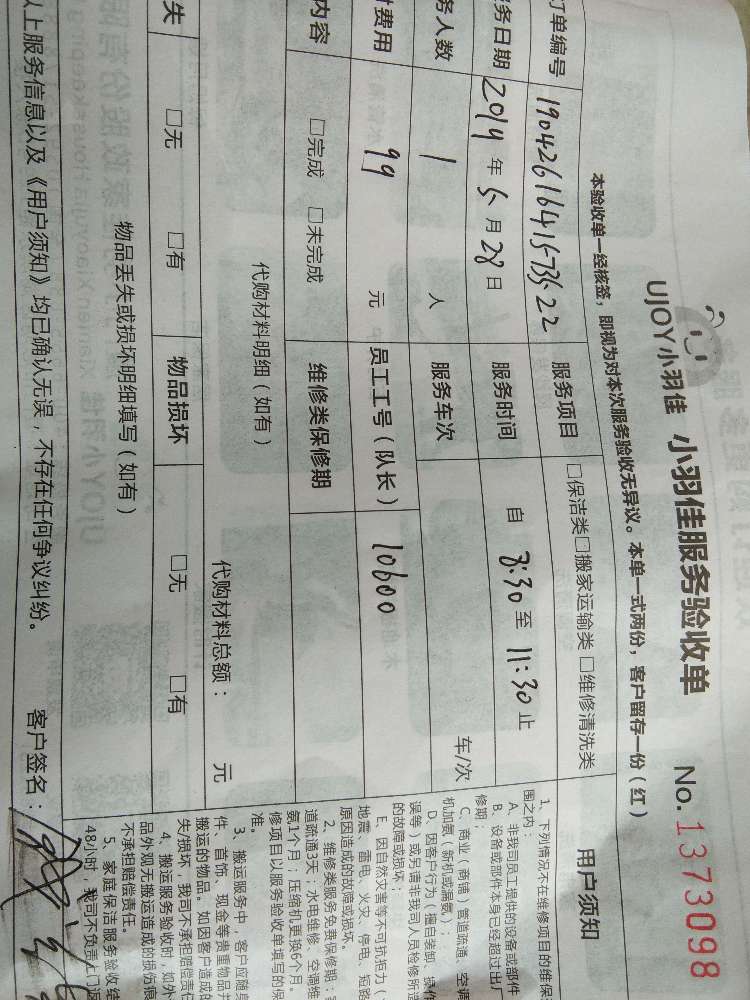 UJOY小羽佳 小羽佳服务验收单 No.1373098
本验收单一经核签，即视为对本次服务验收无异议。本单一式两份，客户留存一份（红）
订单编号 19042616415733522 服务项目 □保洁类□搬家运输类 □维修清洗类
服务日期 2019 年 5 月 28 日 服务时间 自 8:30 至 11:30 止
务人数 1 人 服务车次 车/次
费用 99 元 员工工号（队长） 10600
内容 □完成 □未完成 维修类保修期
代购材料明细（如有） 代购材料总额： 元
失 □无 □有 物品损坏 □无 □有
物品丢失或损坏明细填写（如有）
以上服务信息以及《用户须知》均已确认无误，不存在任何争议纠纷。 客户签名：
用户须知
1、下列情况不在维修项目的维保
围之内：
A、非我司员工提供的设备或部件
B、设备或部件本身已经超过出厂
修期；
C、商业（商铺）管道疏通、空调
机加氨（新机或漏氨）；
D、因客户行为（擅自装卸、操作
误等）或另请非我司人员检修所造
的故障或损坏；
E、因自然灾害等不可抗拒力（
地震、雷电、火灾、停电、短路
原因造成的故障或损坏。
2、维修类服务免费保修期：
道疏通3天；水电维修、空调维
氨1个月；压缩机更换6个月。
修项目以服务验收单填写的保
准。
3、搬运服务中，客户应随身
件、首饰、现金等贵重物品并
搬运的物品。如因客户造成的
失/损坏，我司不承担赔偿责任
4、搬运服务验收时，如外
品外观无搬运造成的损伤痕
不承担赔偿责任。
5、家庭保洁服务验收
48小时，我司不负责上门返